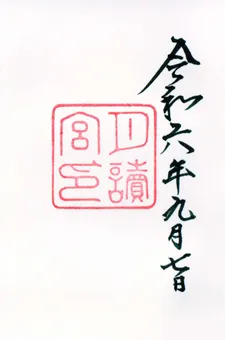 令和六年九月七日
月讀
宮印